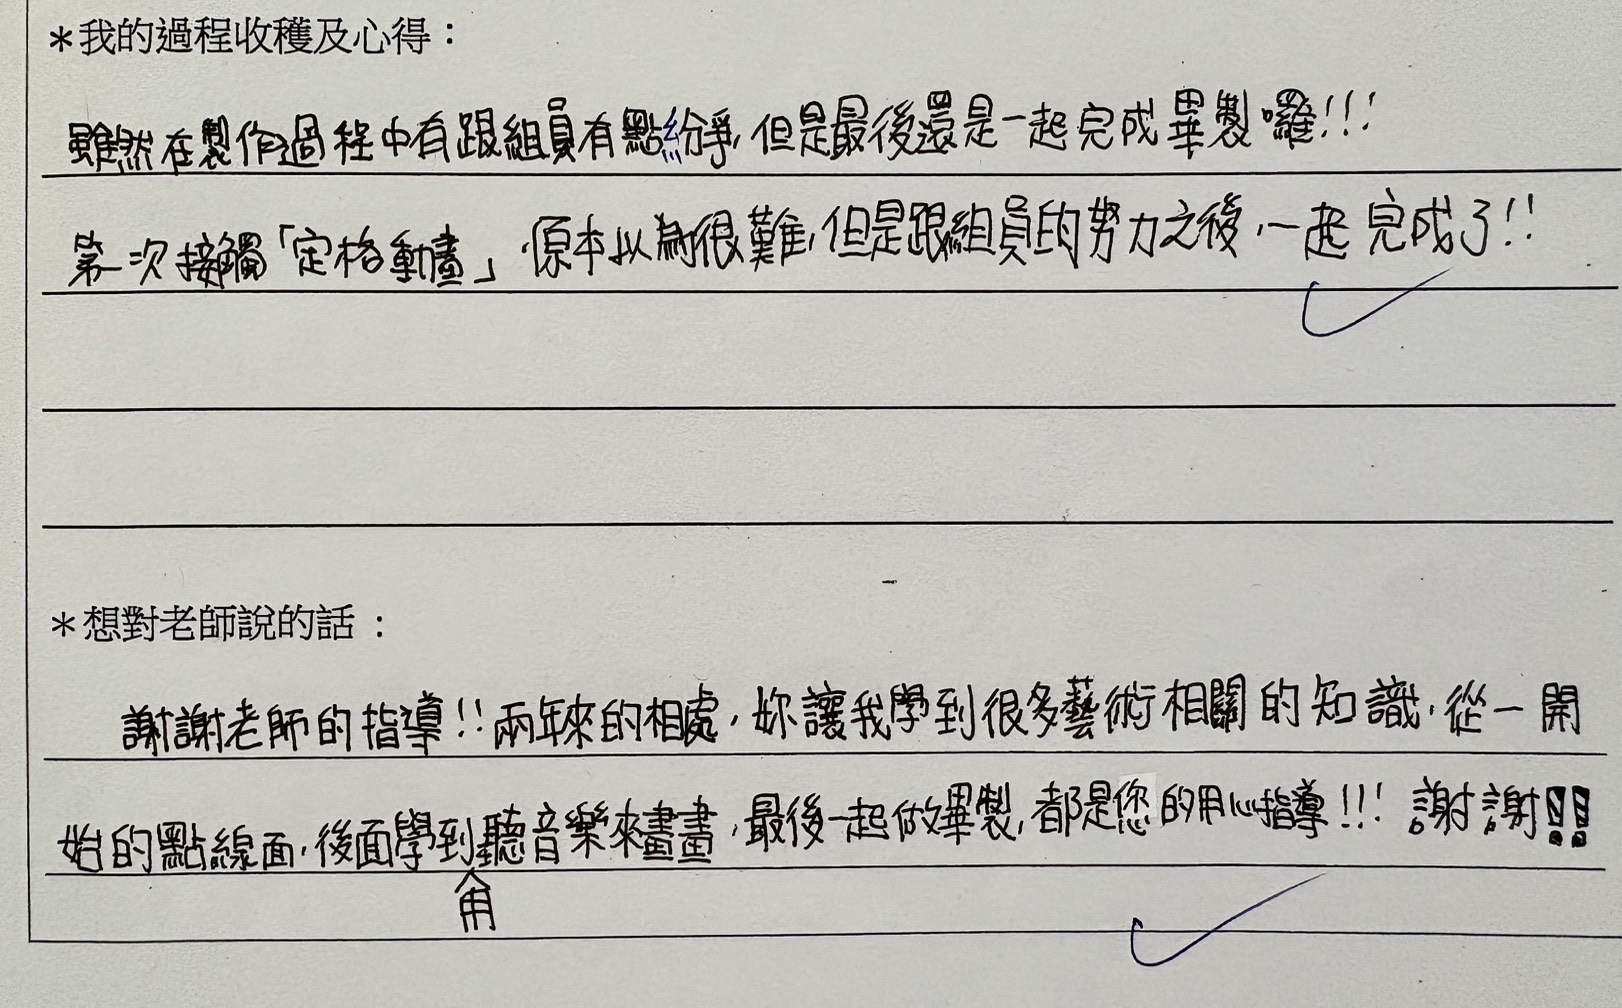 ＊我的過程收穫及心得：
雖然在製作過程中有跟組員有點紛爭，但是最後還是一起完成畢製囉!!!
第一次接觸「定格動畫」，原本以為很難，但是跟組員的努力之後，一起完成了!!
＊想對老師說的話：
謝謝老師的指導!!兩年來的相處，妳讓我學到很多藝術相關的知識，從一開
始的點線面，後面學到聽音樂來畫畫，最後一起做畢製，都是您的用心指導!!!謝謝!!
用